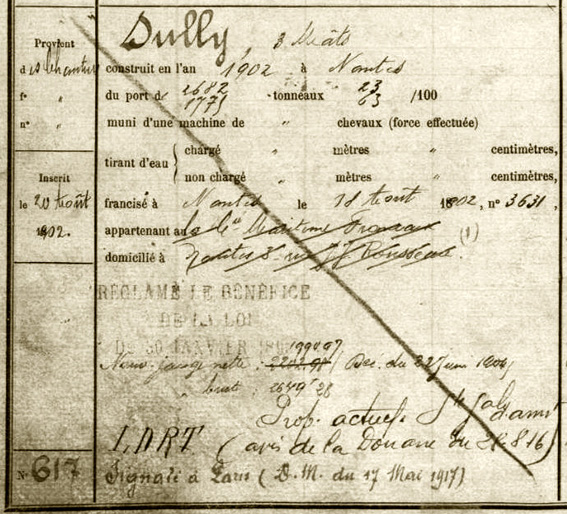 Sully, 3 Mâts
Provient
des Chantiers
construit en l'an 1902 à Nantes
du port de 2682 tonneaux 23 /100
1771 63
fo "
no " muni d'une machine de " chevaux (force effectuée)
tirant d'eau { chargé mètres " centimètres,
non chargé mètres " centimètres,
Inscrit
le 20 Août
1902.
francisé à Nantes le 18 Août 1902, no 3631,
appartenant à la Cie Maritime Française (1)
domicilié à Nantes 3 rue J.J. Rousseau.
RÉCLAME LE BÉNÉFICE
DE LA LOI
DU 30 JANVIER
1999 97
Nouv. jauge nette : 2202.98 / Dec. du 22 Juin 1904
" brut : 2649 28
Prop. actuel.
LDRT (avis de la Douane du 8 16)
No 617
Signalé à Paris (D.M. du 17 Mai 1917)